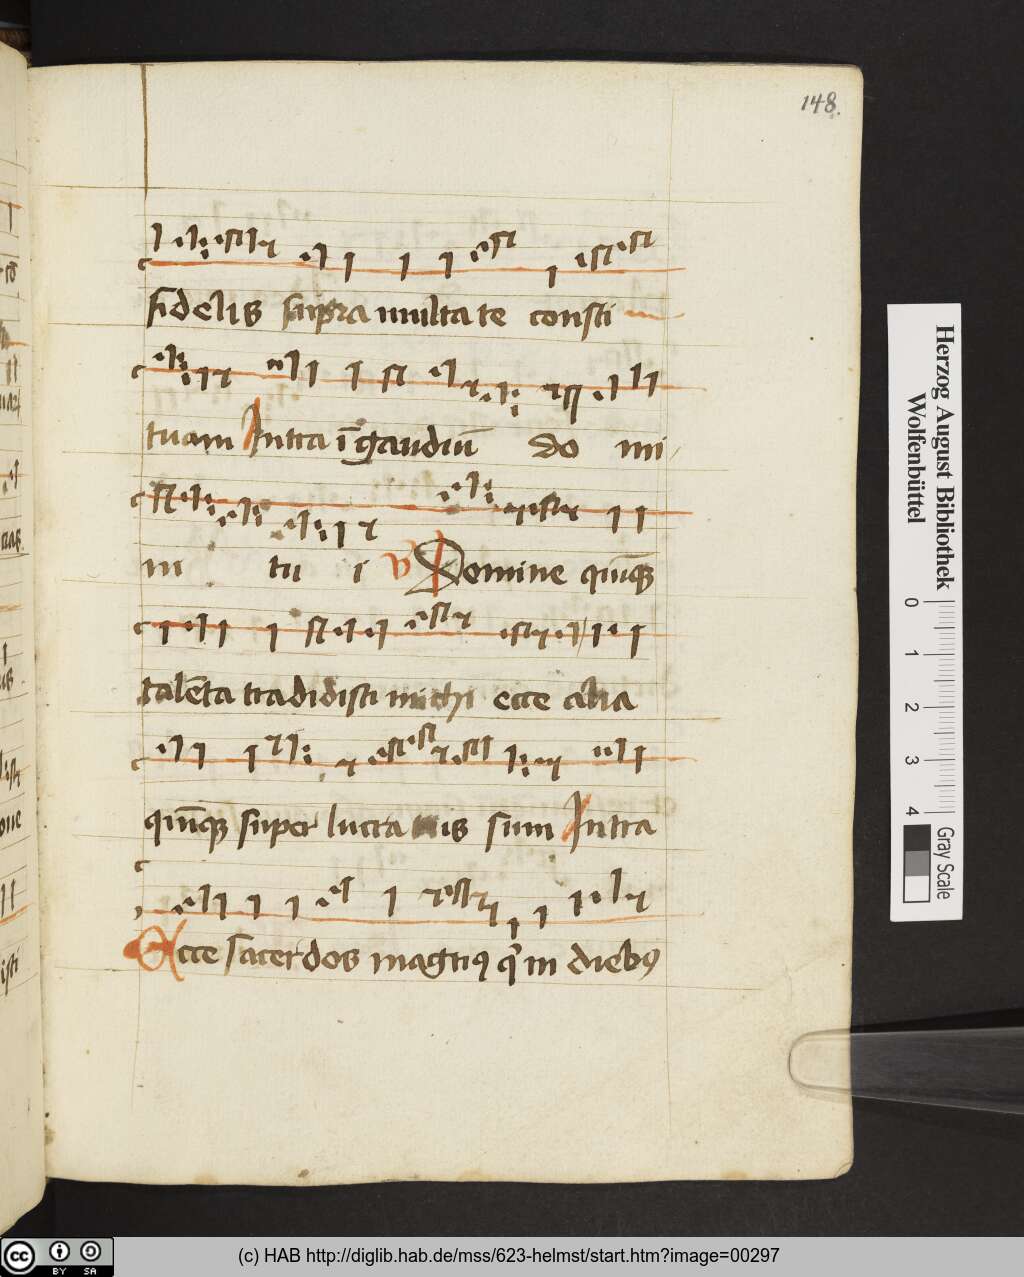 148.
fidelis supra multa te consti
tuam Intra ī gaudiū do mi
ni tu i V Domine quīq
talēta tradidisti michi ecce alia
quīq super lucratus sum Intra
Ecce sacerdos magnus q in diebus
Herzog August Bibliothek
Wolfenbüttel
0 1 2 3 4
Gray Scale
cc BY SA
(c) HAB http://diglib.hab.de/mss/623-helmst/start.htm?image=00297